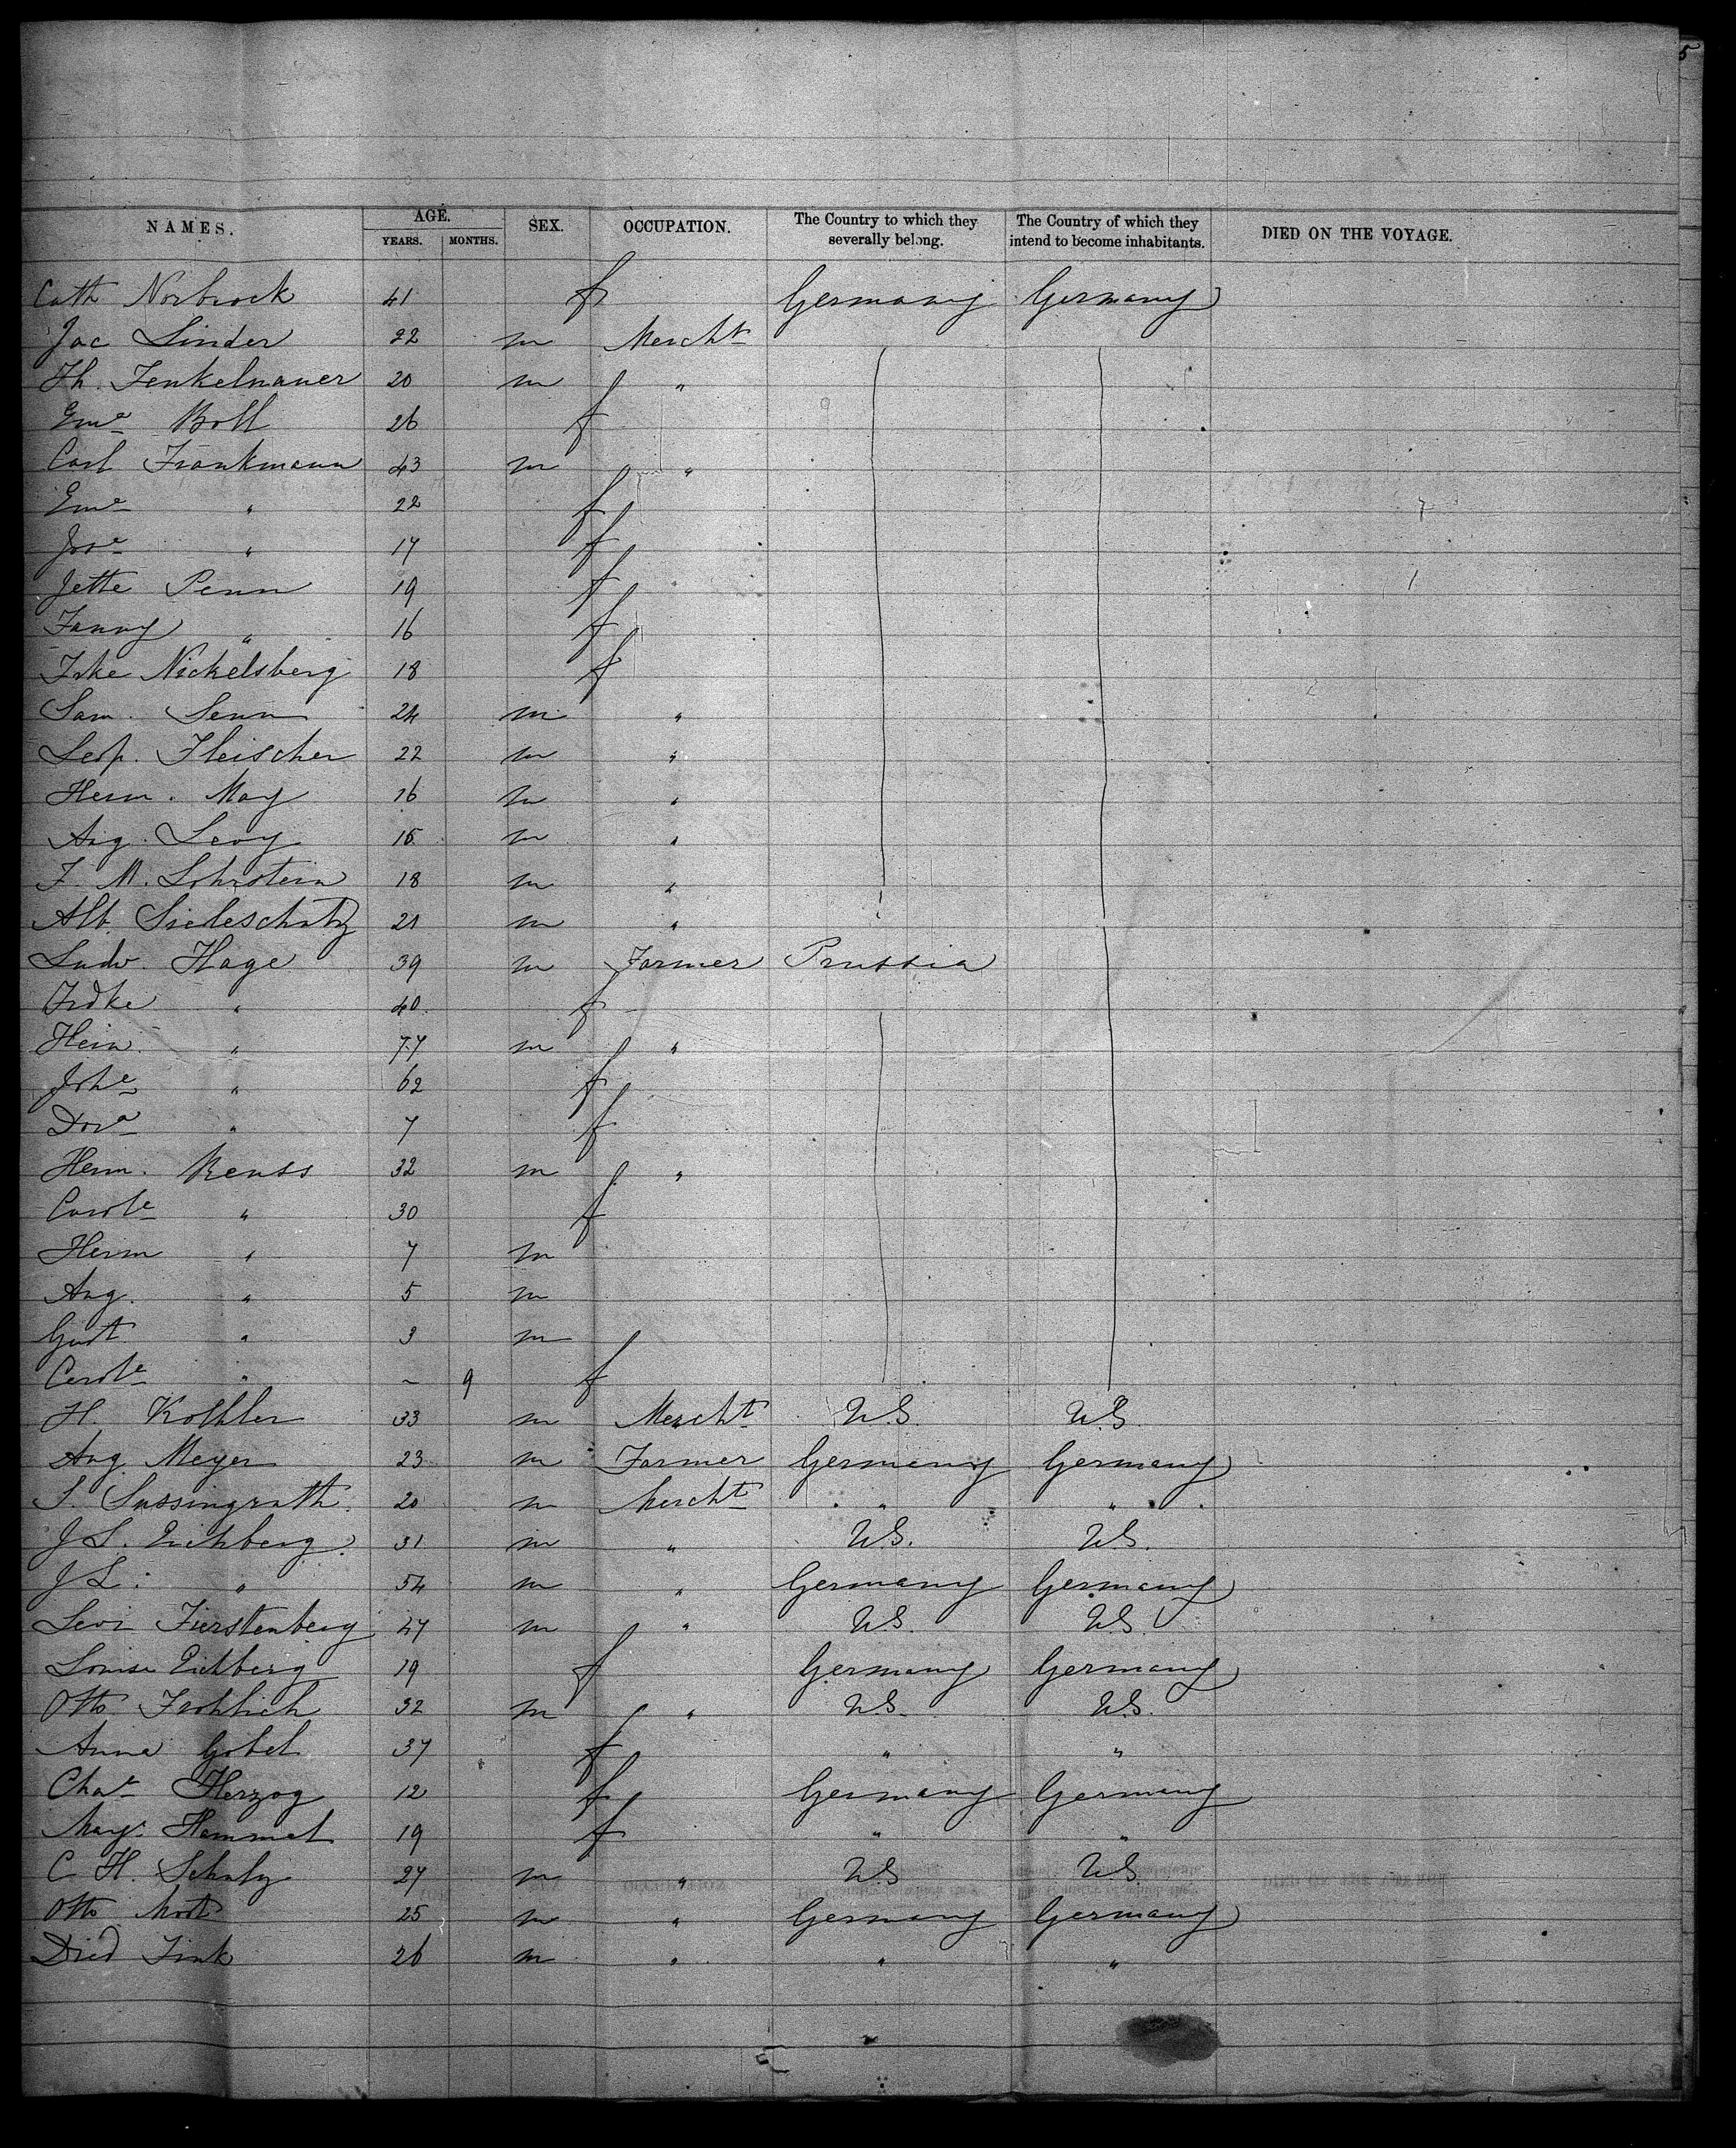 5
NAMES. AGE. YEARS. MONTHS. SEX. OCCUPATION. The Country to which they severally belong. The Country of which they intend to become inhabitants. DIED ON THE VOYAGE.
Cath Norbrock 41 f Germany Germany
Jac Linder 22 m Mercht
Th. Fenkelnauer 20 m "
Eme Boll 26 f
Carl Frankmann 43 m "
Eme " 22 f
Jose " 17 f
Jette Penn 19 f
Fanny " 16 f
Frke Nickelsberg 18 f
Sam. Senn 24 m "
Leop. Fleischer 22 m "
Herm. May 16 m "
Aug. Levy 15 m "
F. M. Lohnstein 18 m "
Alb. 21 m "
Ludw. Hage 39 m Farmer Prussia
Frdke " 40 f
Hein. " 77 m "
Johe " 62 f
Dora " 7 f
Herm. Reuss 32 m "
Carole " 30 f
Herm " 7 m
Aug. " 5 m
Gust " 3 m
Carole " ~ 9 f
H. Kothler 33 m Mercht U.S. U.S.
Aug. Meyer 23 m Farmer Germany Germany
S. Sussingrath 20 m Mercht " "
J S. Eichberg 31 m " U.S. U.S.
J L. " 54 m " Germany Germany
Levi Fierstenberg 47 m " U.S. U.S.
Louise Eichberg 19 f Germany Germany
Otto Frohlich 32 m " U.S. U.S.
Anna Gobel 37 f " "
Chae Herzog 12 f Germany Germany
Marg. Hammel 19 f " "
C H. Schulz 27 m " U.S U.S.
Otto 25 m " Germany Germany
Died Fink 26 m " " "